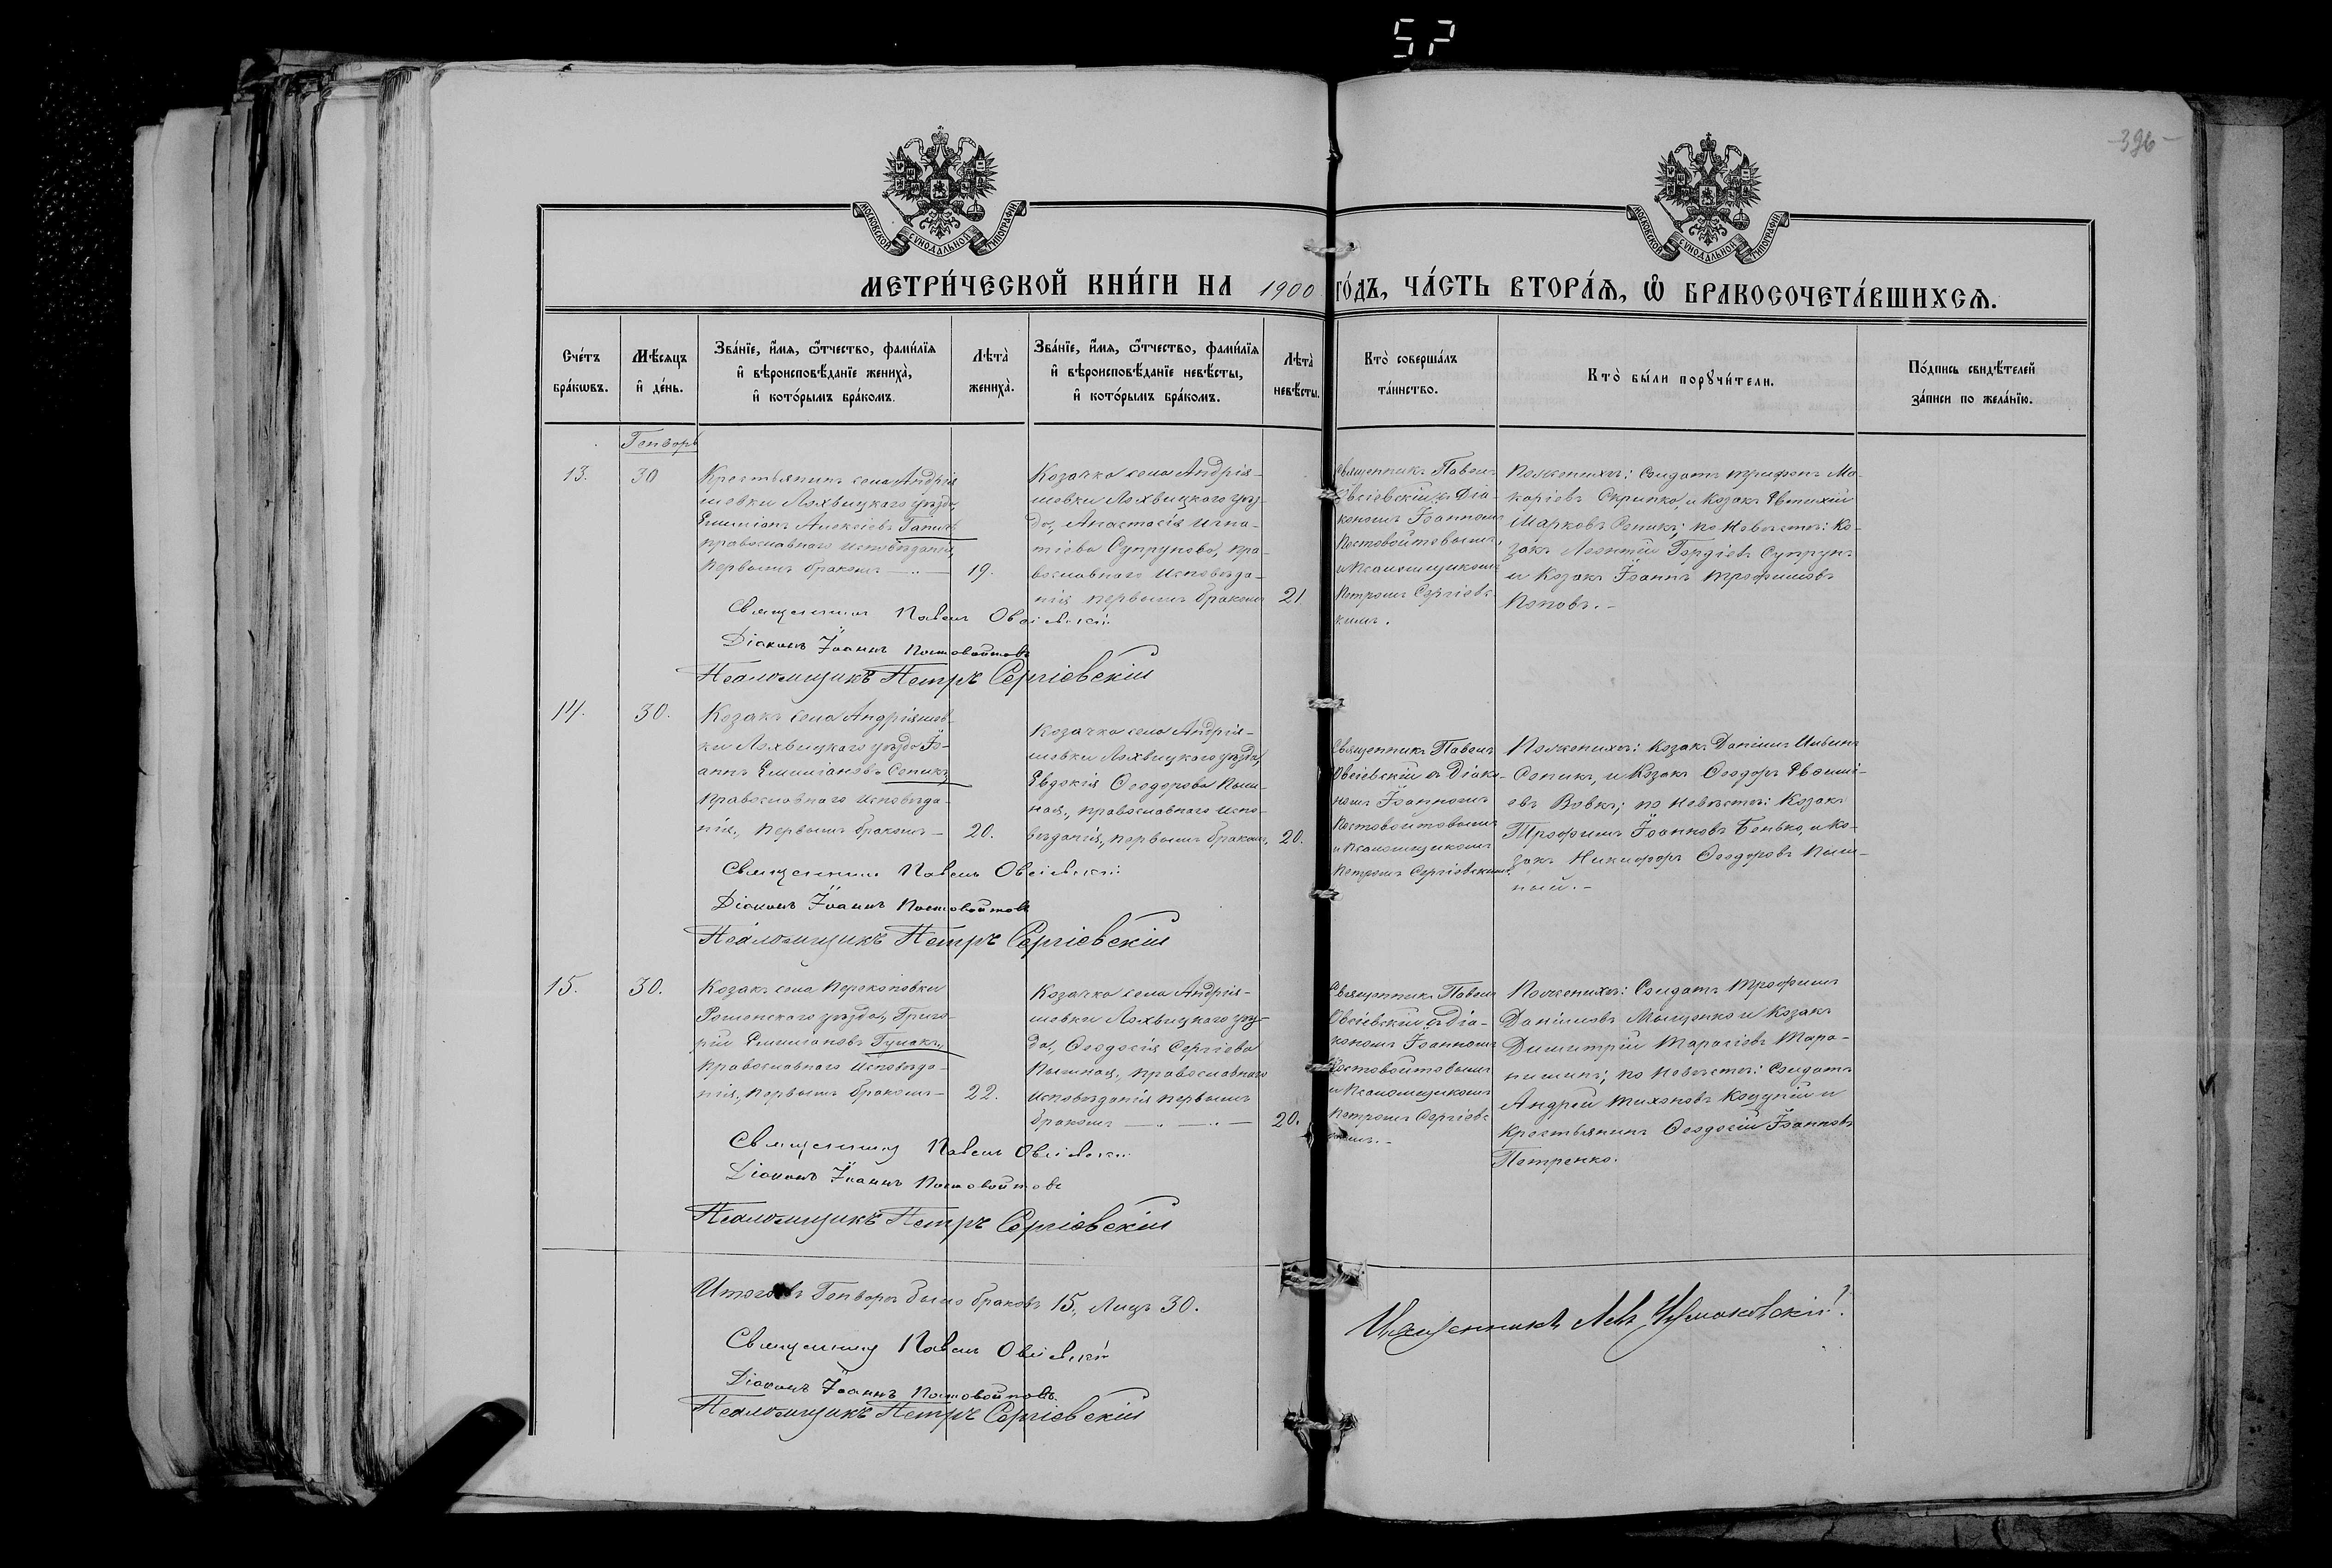 52
396
МОСКОВСКОЙ СѴНОДАЛЬНОЙ ТИПОГРАФІИ
МОСКОВСКОЙ СѴНОДАЛЬНОЙ ТИПОГРАФІИ
МЕТРИ́ЧЕСКОЙ КНИ́ГИ НА 1900 ГО́ДЪ, ЧА́СТЬ ВТОРА́Ѧ, Ѽ БРАКОСОЧЕТА́ВШИХСѦ.
Сче́тъ
бра́кѡвъ.
Мѣ́сѧцъ
и҆ де́нь.
Зва́нїе, и҆́мѧ, ѻ҆́тчество, фами́лїѧ
и҆ вѣроисповѣ́данїе жениха̀,
и҆ кото́рымъ бра́комъ.
Лѣ́та
жениха̀.
Зва́нїе, и҆́мѧ, ѻ҆́тчество, фами́лїѧ
и҆ вѣроисповѣ́данїе невѣ́сты,
и҆ кото́рымъ бра́комъ.
Лѣ́та
невѣ́сты.
Кто̀ соверша́лъ
та́инство.
Кто̀ бы́ли порꙋчи́тели.
По́дпись свидѣ́телей
за́писи по жела́нїю.
Генварь
13.
30
Крестьянинъ села Андрія
шовки Лохвицкаго уѣзда,
Емиліанъ Алексіевъ
православнаго исповѣданія
первымъ бракомъ
19.
Козачка села Андрія-
шовки Лохвицкаго уѣз-
да, Анастасія Игна-
тіева Супрунова, пра-
вославнаго исповѣда-
нія первымъ бракомъ
21.
Священникъ Павелъ
Овсіевскій съ Діа-
кономъ Іоанномъ
Постовойтовымъ
и Псаломщикомъ
Петромъ Сергіевс-
кимъ.
По женихѣ: Солдатъ Трифонъ Ма-
каріевъ Скрипка, и Козакъ Евтихій
Марковъ Сопикъ; по невѣстѣ: Ко-
закъ Леонтій Гордіевъ Супрунъ
и Козакъ Іоаннъ Трофимовъ
Поповъ.-
Священникъ Павелъ Овсіевскій
Діаконъ Іоаннъ Постовойтовъ
Псаломщикъ Петръ Сергіевскій
14.
30.
Козакъ села Андріяшов-
ки Лохвицкаго уѣзда Іо-
аннъ Емиліановъ Сопикъ,
православнаго исповѣда-
нія, первымъ бракомъ-
20.
Козачка села Андрія-
шовки Лохвицкаго уѣзда,
Евдокія Ѳеодорова Пыш-
ная, православнаго испо-
вѣданія, первымъ бракомъ,
20.
Священникъ Павелъ
Овсіевскій съ Діако-
номъ Іоанномъ
Постовойтовымъ
и Псаломщикомъ
Петромъ Сергіевскимъ.
По женихѣ: Козакъ Даніилъ Ильинъ
Сопикъ, и Козакъ Ѳеодоръ
Вовкъ; по невѣстѣ: Козакъ
Трофимъ Іоанновъ Бенько, и Ко-
закъ Никифоръ Ѳеодоровъ Пыш-
ный.-
Священникъ Павелъ Овсіевскій
Діаконъ Іоаннъ Постовойтовъ
Псаломщикъ Петръ Сергіевскій
15.
30.
Козакъ села Перекоповки
Роменскаго уѣзда, Григо-
рій Емиліановъ
православнаго исповѣда-
нія, первымъ бракомъ-
22.
Козачка села Андрія-
шовки Лохвицкаго уѣз-
да, Ѳеодосія Сергіева
Пышная, православнаго
исповѣданія первымъ
бракомъ
20.
Священникъ Павелъ
Овсіевскій съ Діа-
кономъ Іоанномъ
Постовойтовымъ
и Псаломщикомъ
Петромъ Сергіевс-
кимъ.-
По женихѣ: Солдатъ Трофимъ
Даніиловъ Мащенко и Козакъ
Димитрій Тарасіевъ Тара-
; по невѣстѣ: Солдатъ
Андрей Тихоновъ и
Крестьянинъ Ѳеодосій Іоанновъ
Петренко.
Священникъ Павелъ Овсіевскій
Діаконъ Іоаннъ Постовойтовъ
Псаломщикъ Петръ Сергіевскій
Итого въ Генварѣ было браковъ 15, Лицъ 30.
Священникъ Павелъ Овсіевскій
Діаконъ Іоаннъ Постовойтовъ.
Псаломщикъ Петръ Сергіевскій
Священникъ